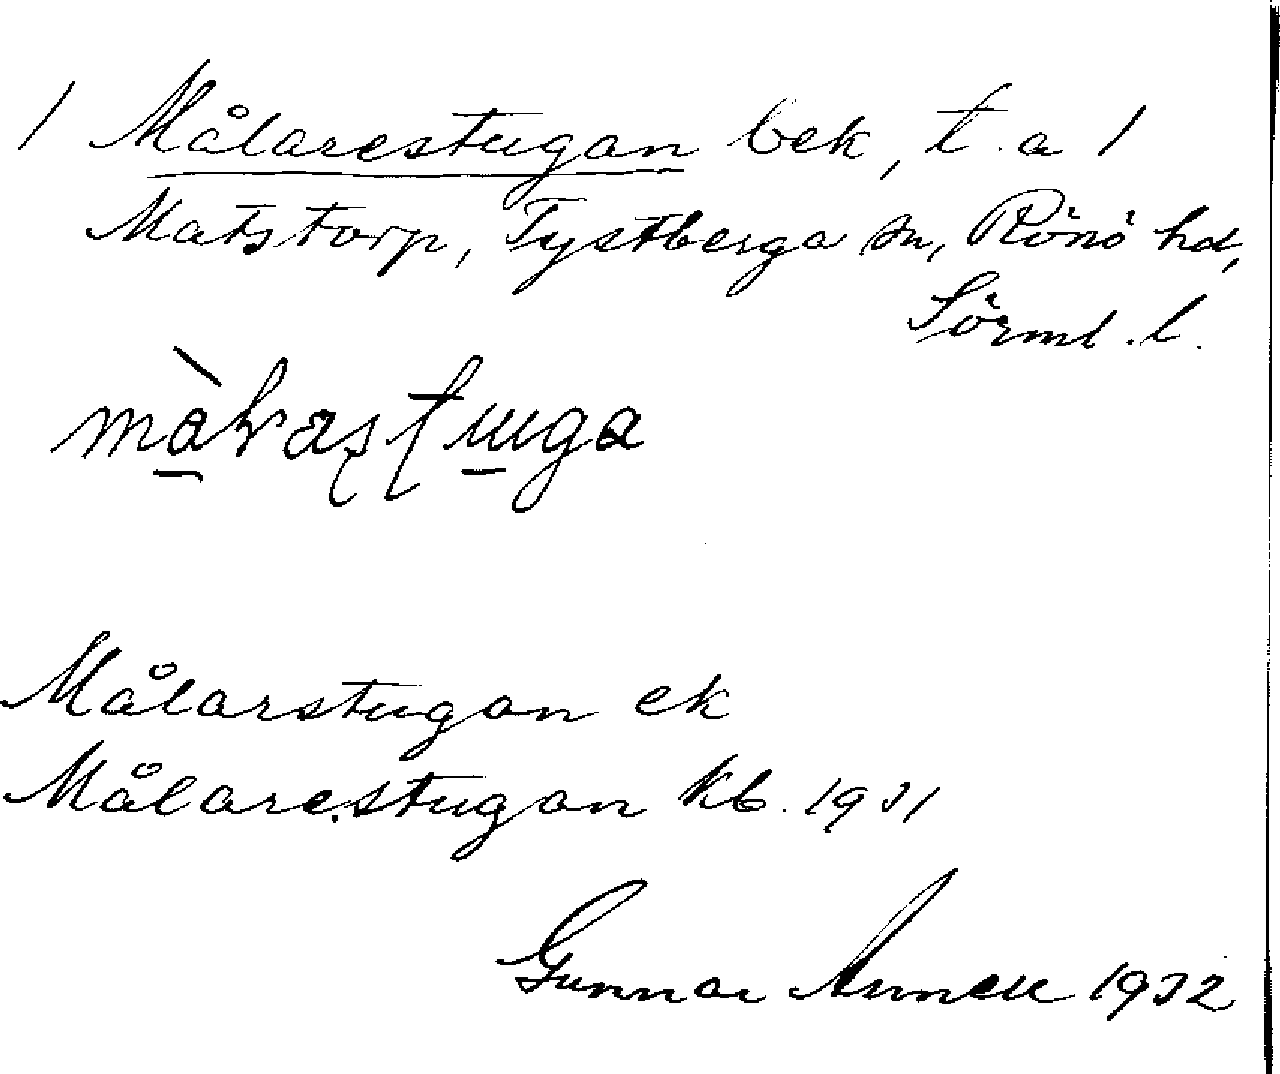 / Målarestugan bek, t. a /
Matstorp, Tystberga sn, Rönö hd,
Sörml. l.
Målarstugan ek
Målarestugan kb. 1931
Gunnar 1932